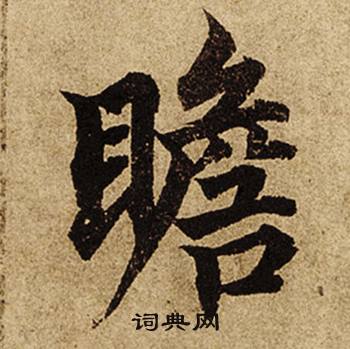 瞻
词典网